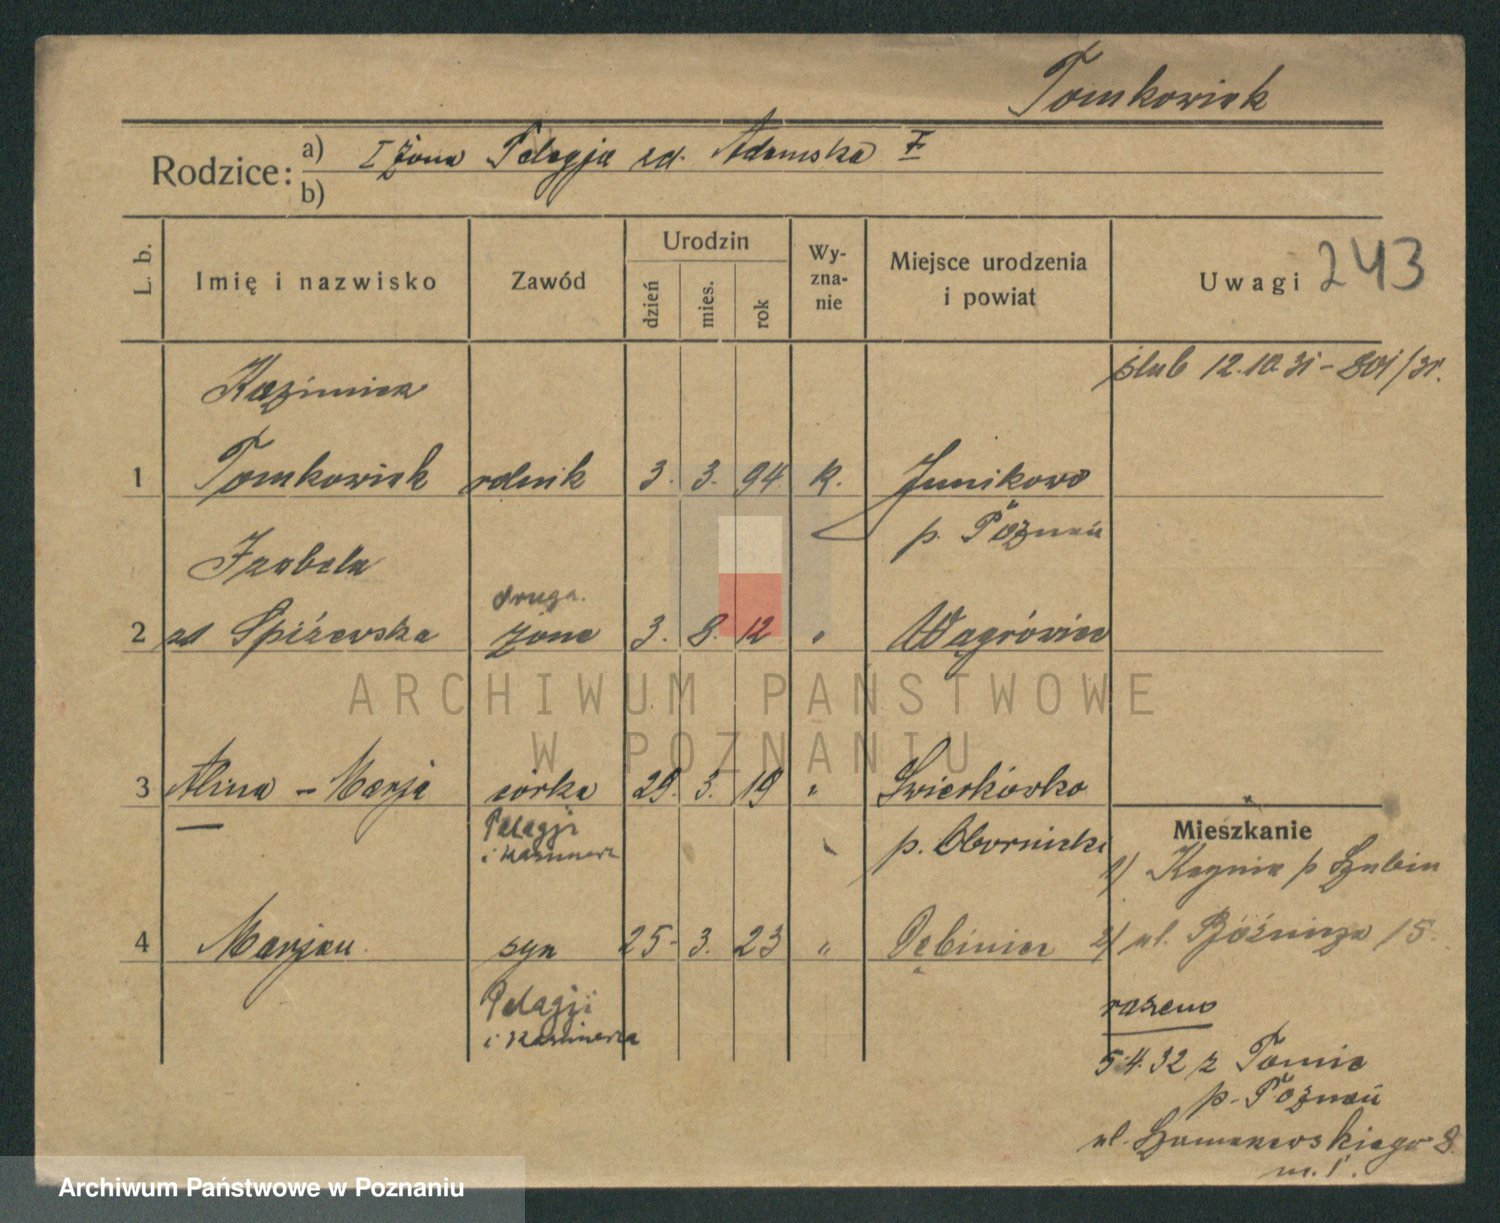 Tomkowiak
Rodzice: a) I żona Pelagja zd. Adamska
b)
L. b. Imię i nazwisko Zawód Urodzin dzień mies. rok Wy-zna-nie Miejsce urodzenia i powiat Uwagi 243
Kazimierz ślub 12.10.31 - 801/31.
1 Tomkowiak rolnik 3. 3. 94 k. Junikowo
p. Poznań
Izabela
druga.
2 zd Spiżewska żona 3. 8. 12 " Wągrówiec
ARCHIWUM PAŃSTWOWE
W POZNANIU
3 Alina - Marja córka 29. 3. 19 " Świerkówko
Pelagji
i Kazimierz
p. Obornicki
Mieszkanie
1) Kcynia p Szubin
4 Marjan syn 25. 3. 23 " Dębiniec
2) ul. 15.
Pelagji
i Kazimierza
razem
5.4.32 z
p. Poznań
ul. Szamarzewskiego 8
m. 1.
Archiwum Państwowe w Poznaniu